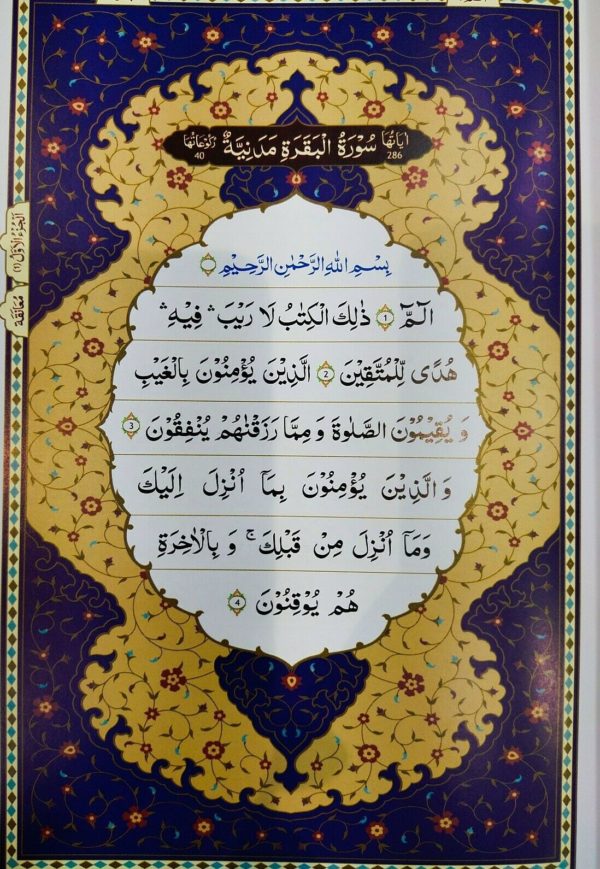 اٰيَاتُهَا 286 سُوْرَةُ الْبَقَرَةِ مَدَنِيَّةٌ رُكُوْعَاتُهَا 40
بِسْمِ اللهِ الرَّحْمٰنِ الرَّحِيْمِ
الٓمّٓ ۝1 ذٰلِكَ الْكِتٰبُ لَا رَيْبَ ۛ فِيْهِ ۛ
هُدًى لِّلْمُتَّقِيْنَ ۝2 الَّذِيْنَ يُؤْمِنُوْنَ بِالْغَيْبِ
وَ يُقِيْمُوْنَ الصَّلٰوةَ وَ مِمَّا رَزَقْنٰهُمْ يُنْفِقُوْنَ ۝3
وَ الَّذِيْنَ يُؤْمِنُوْنَ بِمَآ اُنْزِلَ اِلَيْكَ
وَمَآ اُنْزِلَ مِنْ قَبْلِكَ ۚ وَ بِالْاٰخِرَةِ
هُمْ يُوْقِنُوْنَ ۝4
اَلْجُزْءُ الْاَوَّلُ (١)
مُعَانَقَة